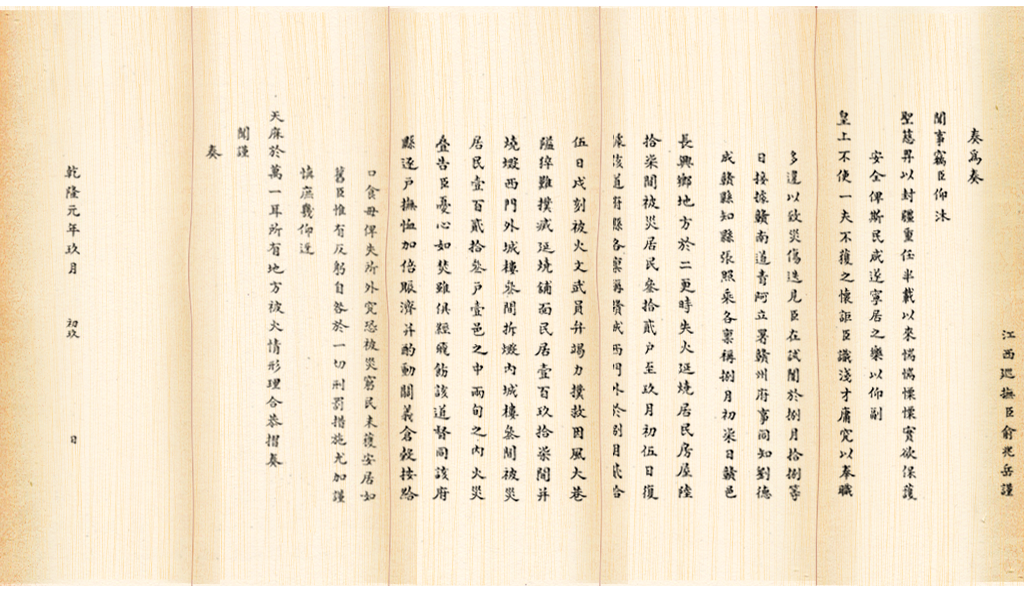 江西巡撫臣俞兆岳謹
奏爲奏
聞事竊臣仰沐
聖慈畀以封疆重任半載以來惴惴慄慄實欲保護
安全俾斯民咸遂寧居之樂以仰副
皇上不使一夫不獲之懷詎臣識淺才庸究以奉職
多違以致災傷迭見臣在試闈於捌月拾捌等
日接據贛南道青阿立署贛州府事同知劉德
成贛縣知縣張照乘各稟稱捌月初柒日贛邑
長興鄉地方於二更時失火延燒居民房屋陸
拾柒間被災居民叁拾貳戶至玖月初伍日復
據該道府縣各稟稱贛城西門外於捌月
伍日戌刻被火文武員弁竭力撲救因風大巷
隘猝難撲滅延燒舖面民居壹百玖拾柒間并
燒燬西門外城樓叁間折燬內城樓叁間被災
居民壹百貳拾叁戶壹邑之中兩旬之內火災
叠告臣憂心如焚雖俱經飛飭該道督同該府
縣逐戶撫恤加倍賑濟并酌動關義倉穀按給
口食毋俾失所外究恐被災窮民未獲安居如
舊臣惟有反躬自咎於一切刑罰措施尤加謹
慎庶幾仰迓
天庥於萬一耳所有地方被火情形理合恭摺奏
聞謹
奏
乾隆元年玖月 初玖 日